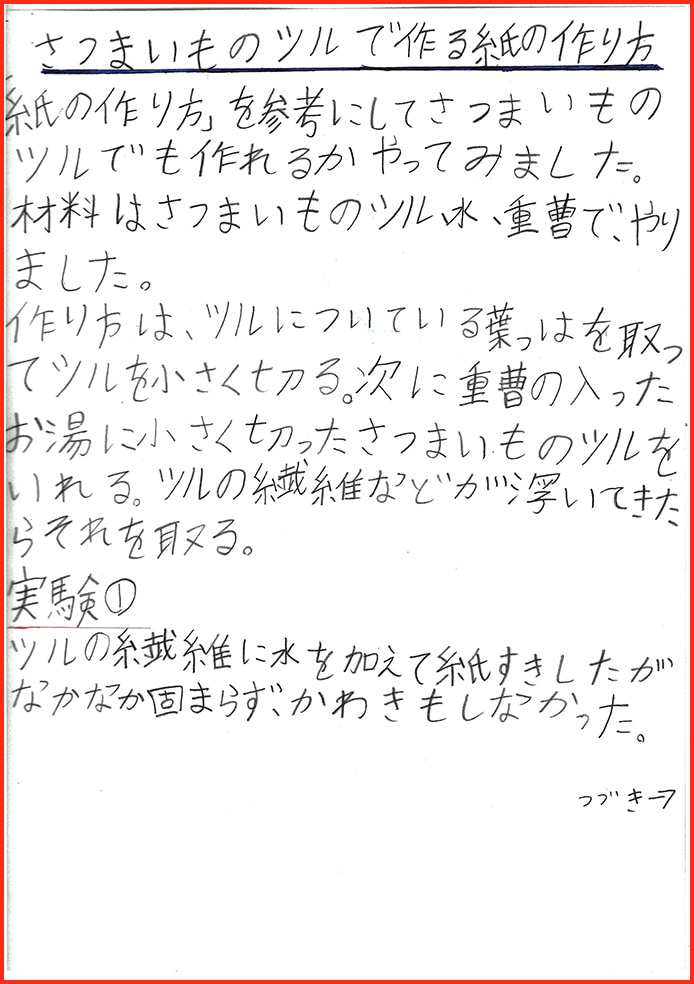 さつまいものツルで作る紙の作り方
紙の作り方」を参考にしてさつまいもの
ツルでも作れるかやってみました。
材料はさつまいものツル、水、重曹で、やり
ました。
作り方は、ツルについている葉っはを取っ
てツルを小さく切る。次に重曹の入った
お湯に小さく切ったさつまいものツルを
いれる。ツルの繊維などが浮いてきた
らそれを取る。
実験①
ツルの繊維に水を加えて紙すきしたが
なかなか固まらず、かわきもしなかった。
つづき→